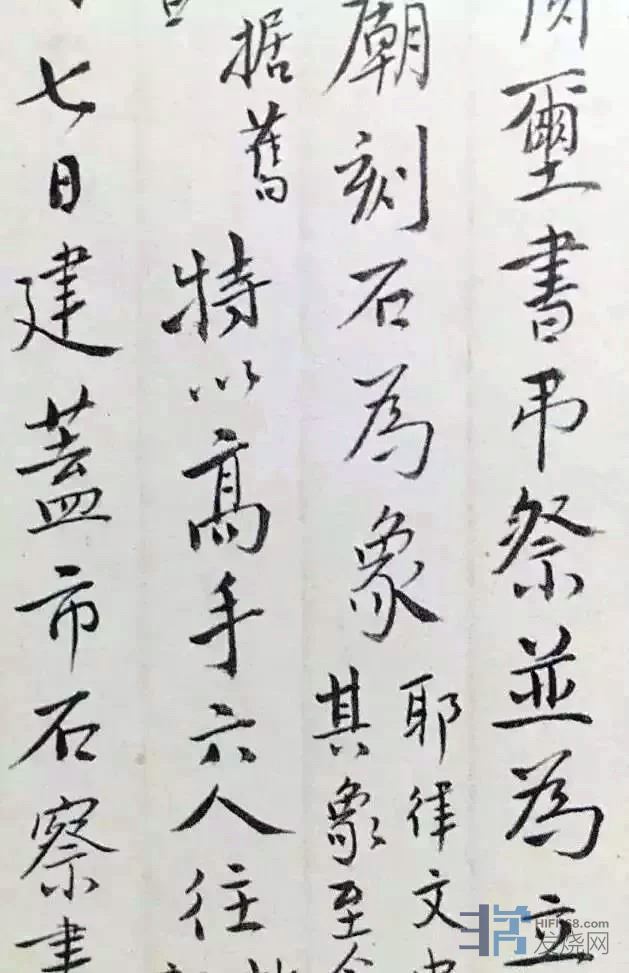 璽書吊祭並為立
廟刻石為象
耶律文
其象至今
据舊
特以高手六人往
七日建蓋市石察書
HIFI168.com
发烧网